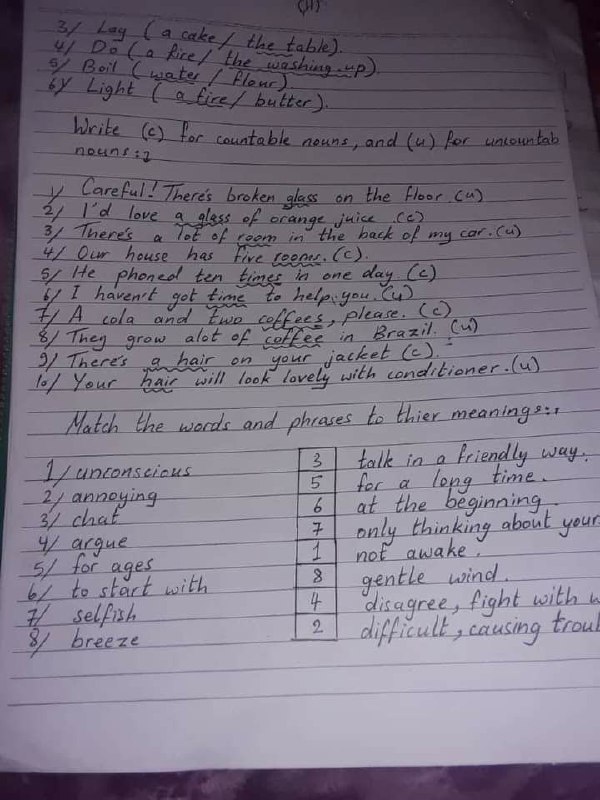 (11)
3/ Lay ( a cake / the table).
4/ Do ( a fire / the washing-up).
5/ Boil ( water / flour)
6/ Light ( a fire / butter).
Write (c) for countable nouns, and (u) for uncountab
nouns:;
1/ Careful! There's broken glass on the floor.(u)
2/ I'd love a glass of orange juice .(c)
3/ There's a lot of room in the back of my car.(u)
4/ Our house has five rooms.(c).
5/ He phoned ten times in one day (c)
6/ I haven't got time to help you.(u)
7/ A cola and two coffees, please. (c)
8/ They grow alot of coffee in Brazil. (u)
9/ There's a hair on your jacket (c).
10/ Your hair will look lovely with conditioner.(u)
Match the words and phrases to thier meanings:;
1/ unconscious 3 talk in a friendly way.
2/ annoying 5 for a long time.
3/ chat 6 at the beginning.
4/ argue 7 only thinking about your
5/ for ages 1 not awake.
6/ to start with 8 gentle wind.
7/ selfish 4 disagree, fight with w
8/ breeze 2 difficult, causing troub